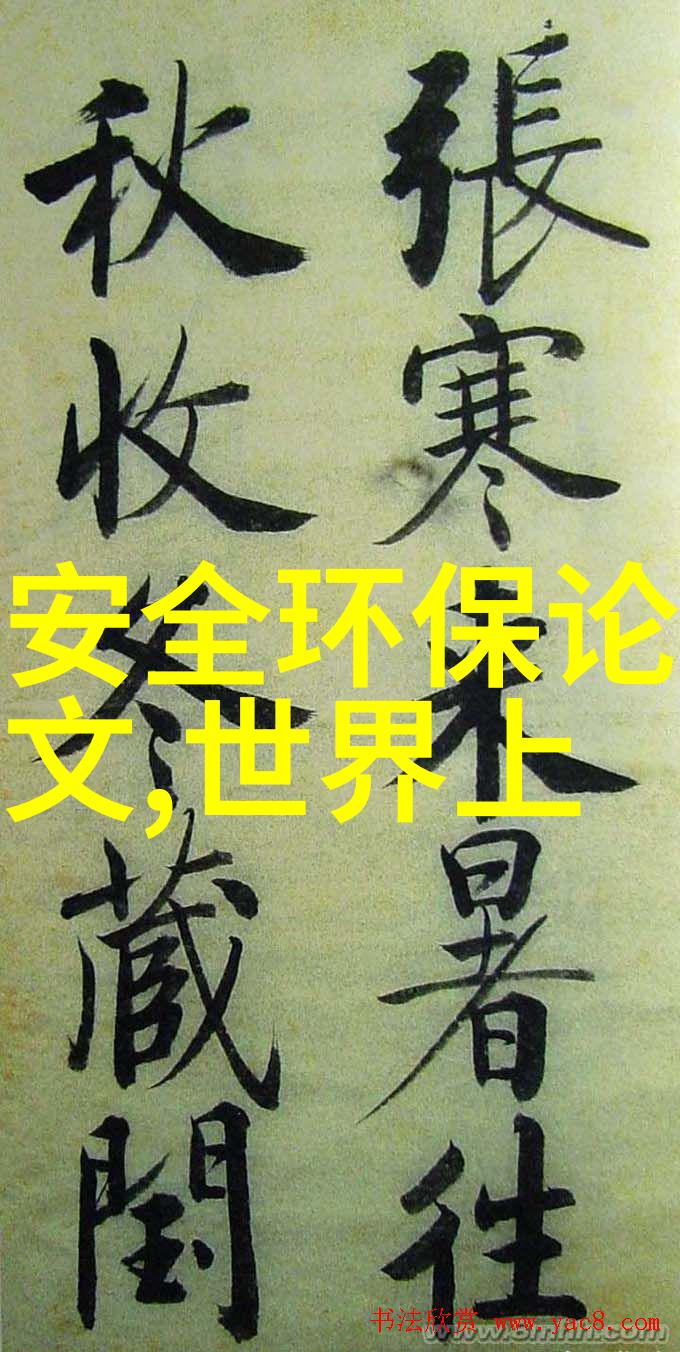 張寒来暑往
秋收冬蔵閏
安全环保论
文,世界上
书法欣赏 www.yac8.com